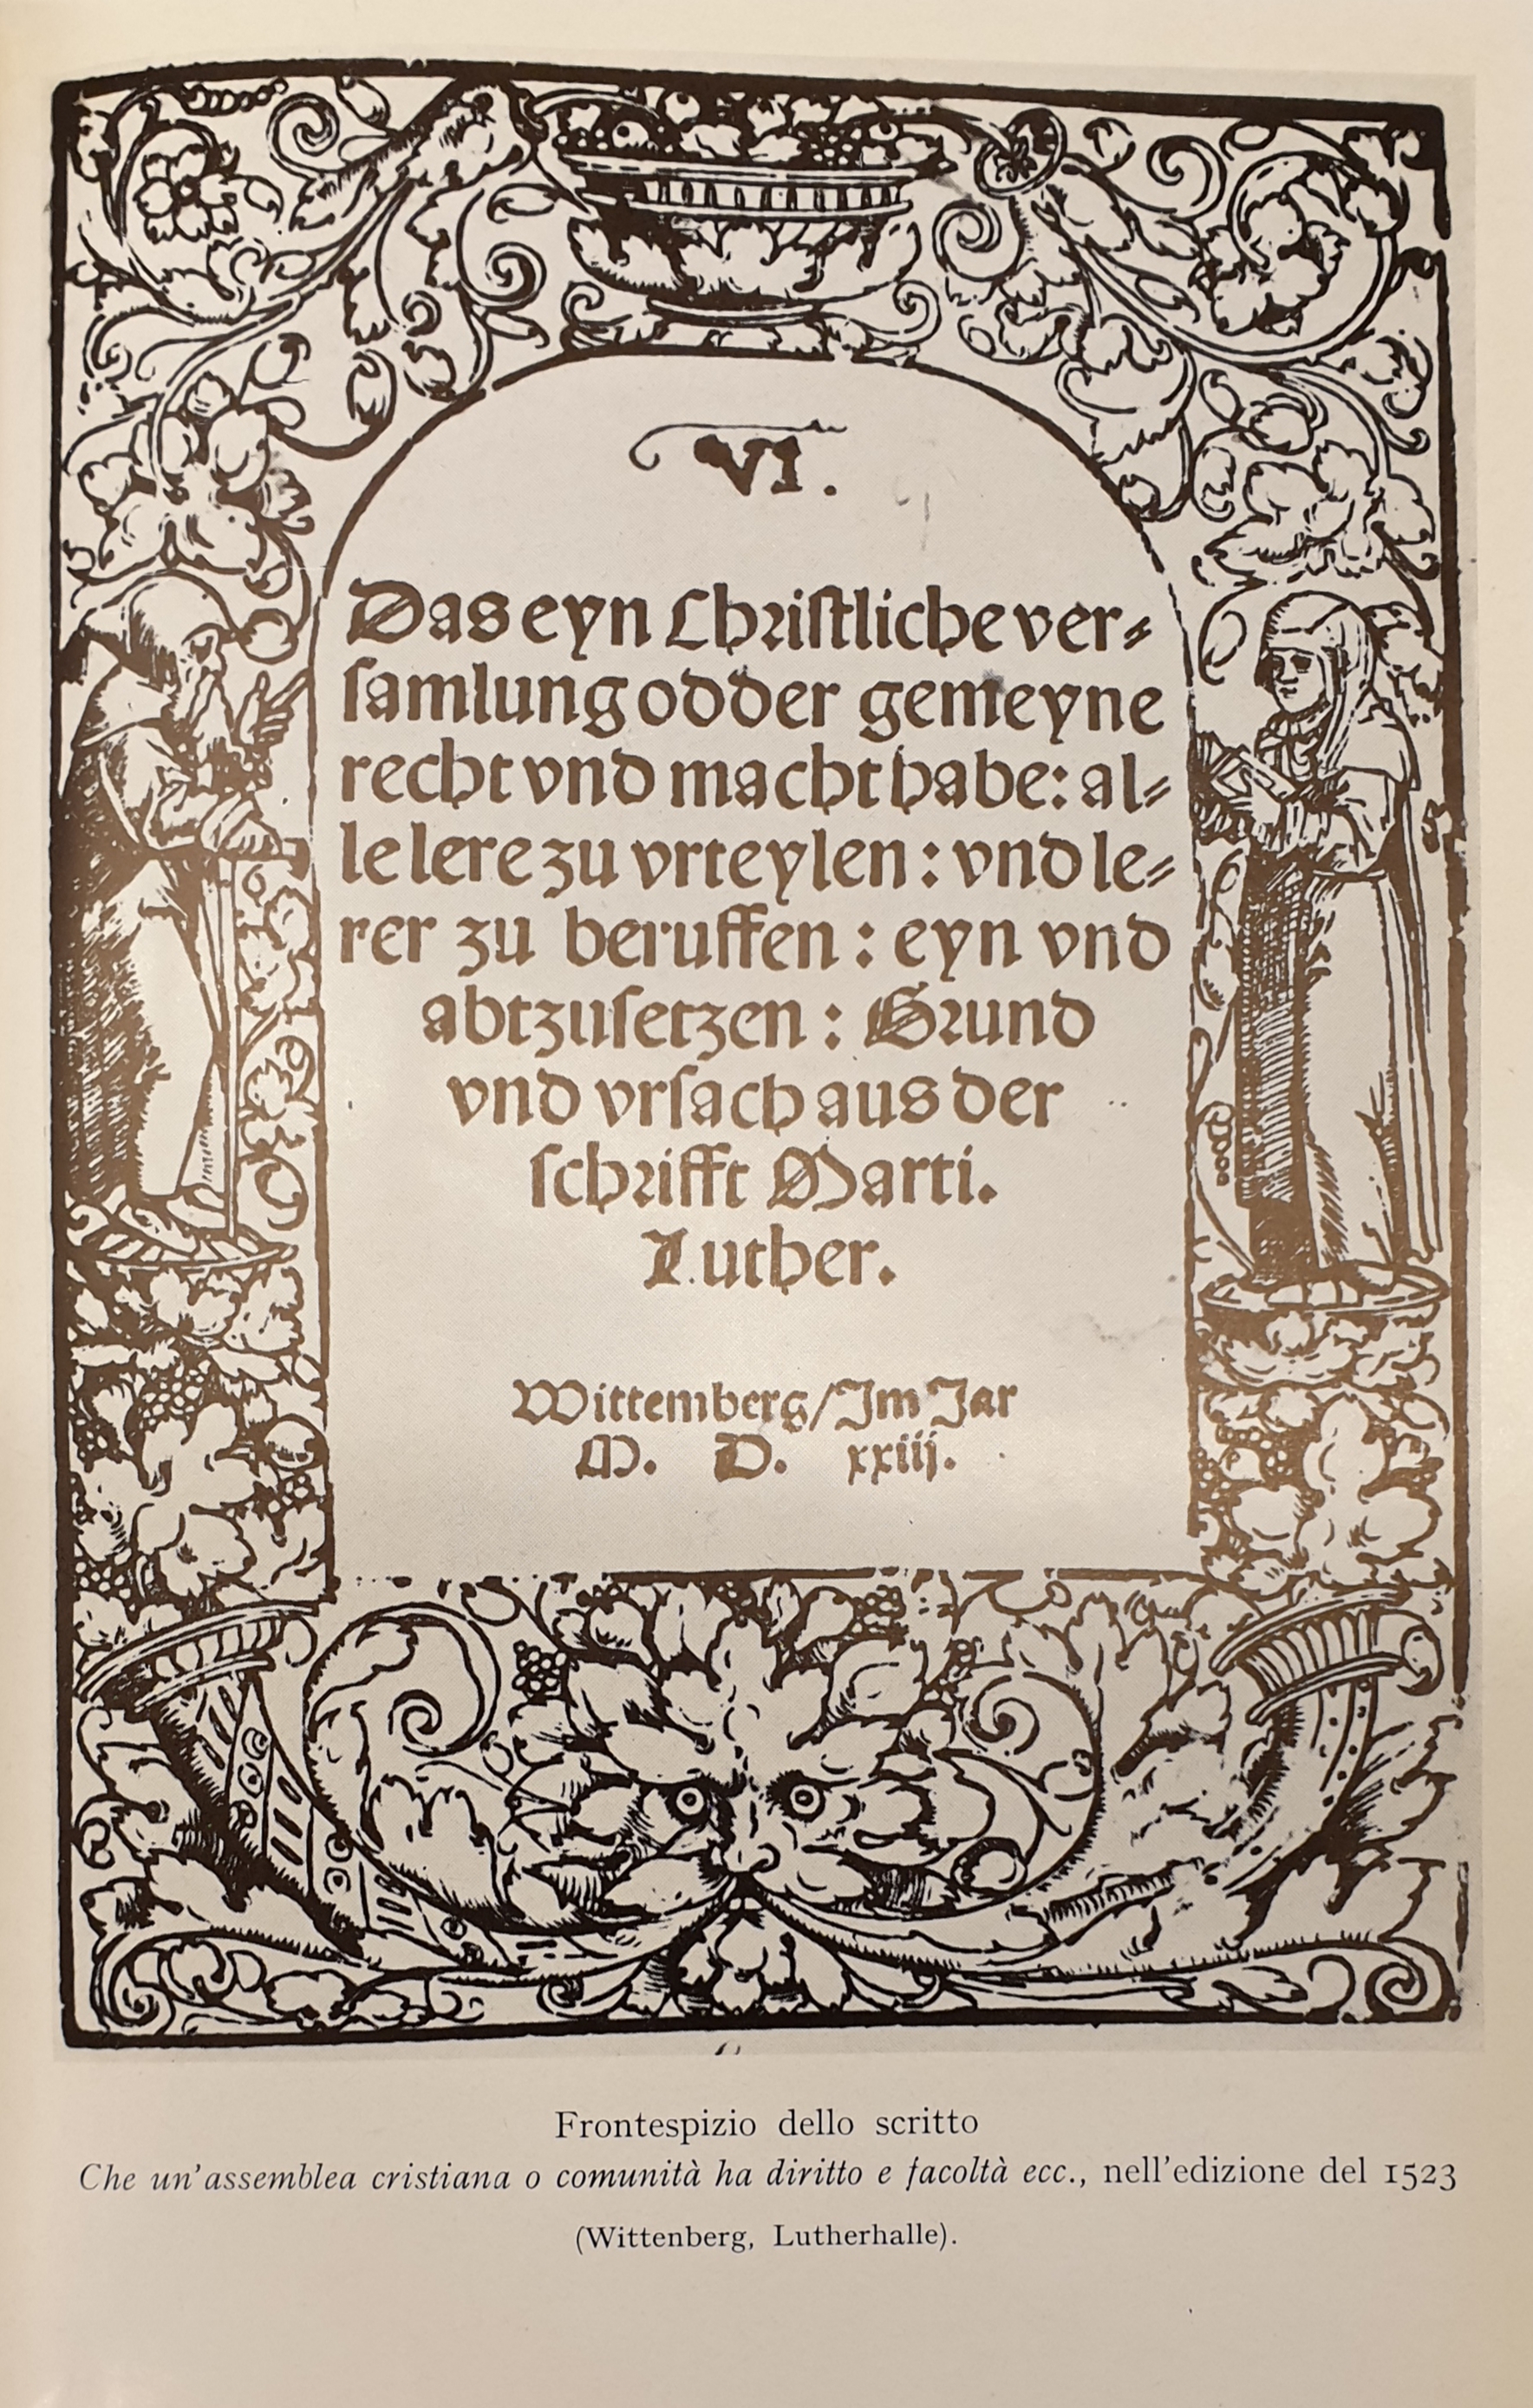 VI.
Das eyn Christliche ver⸗
ſamlung odder gemeyne
recht vnd macht habe: al⸗
le lere zu vrteylen: vnd le⸗
rer zu beruffen: eyn vnd
abtzuſetzen: Grund
vnd vrſach aus der
ſchrifft Marti.
Luther.
Wittemberg/Im Jar
M. D. xxiij.
Frontespizio dello scritto
Che un'assemblea cristiana o comunità ha diritto e facoltà ecc., nell'edizione del 1523
(Wittenberg, Lutherhalle).